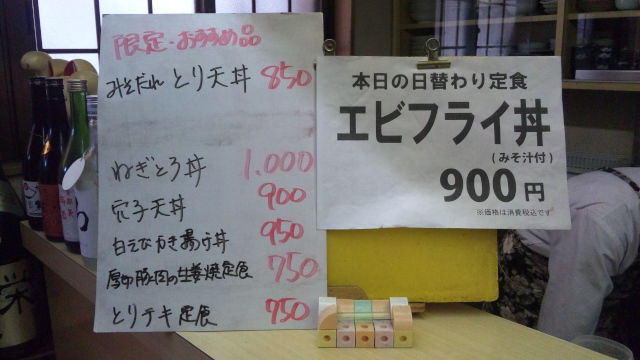 限定・おすすめ品
みそだれとり天丼 850
ねぎとろ丼 1.000
穴子天丼 900
白えびかき揚げ丼 950
厚切豚肉の生姜焼定食 750
とりテキ定食 750
本日の日替わり定食
エビフライ丼
(みそ汁付)
900円
※価格は消費税込です